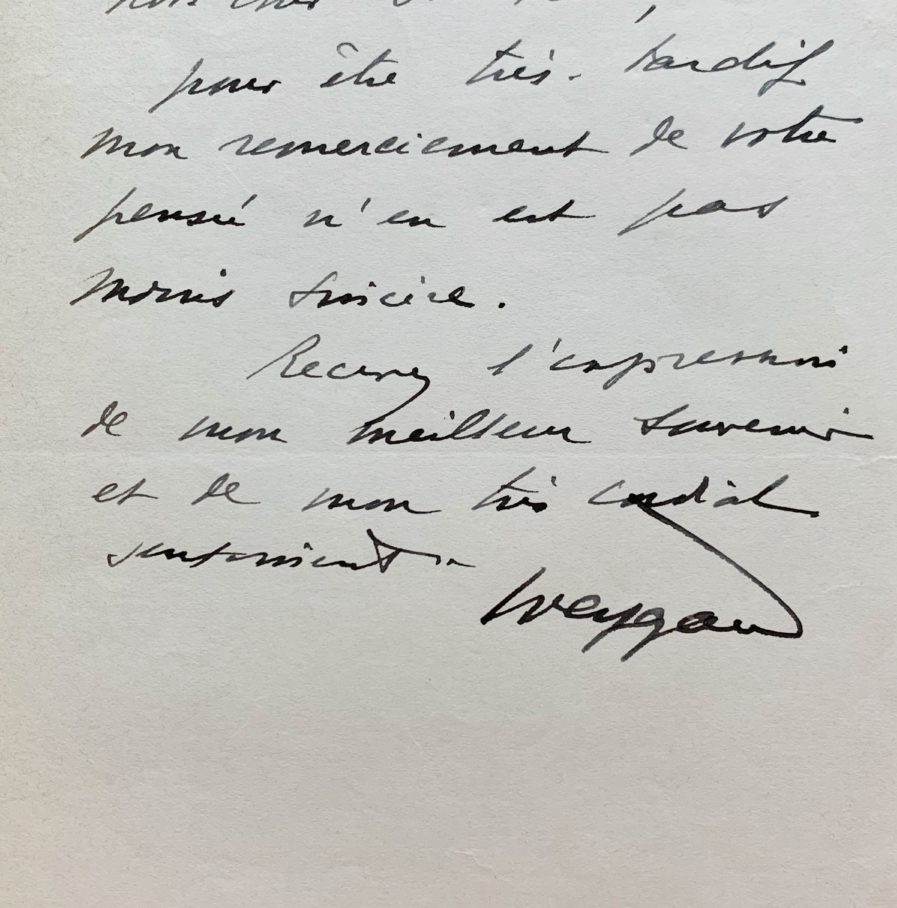 Mon cher
pour être très tardif
mon remerciement de votre
pensée n'en est pas
moins sincère.
Recevez l'expression
de mon meilleur souvenir
et de mon très cordial
sentiment.
Weygand